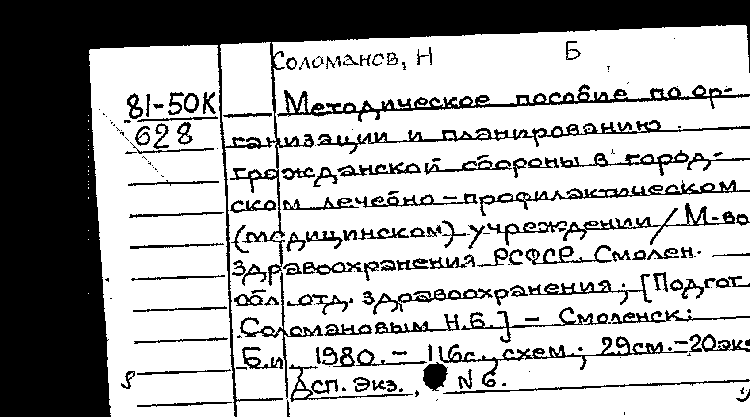 Соломанов, Н Б
81-50К Методическое пособие по ор-
628 ганизации и планированию
гражданской обороны в город-
ском лечебно-профилактическом
(медицинском) учреждении/М-во
здравоохранения РСФСР. Смолен.
обл. отд. здравоохранения; [Подгот
Соломановым Н.Б.] - Смоленск:
Б.и, 1980. - 116с., схем.; 29см. -20экз
Дсп. Экз. N 6.